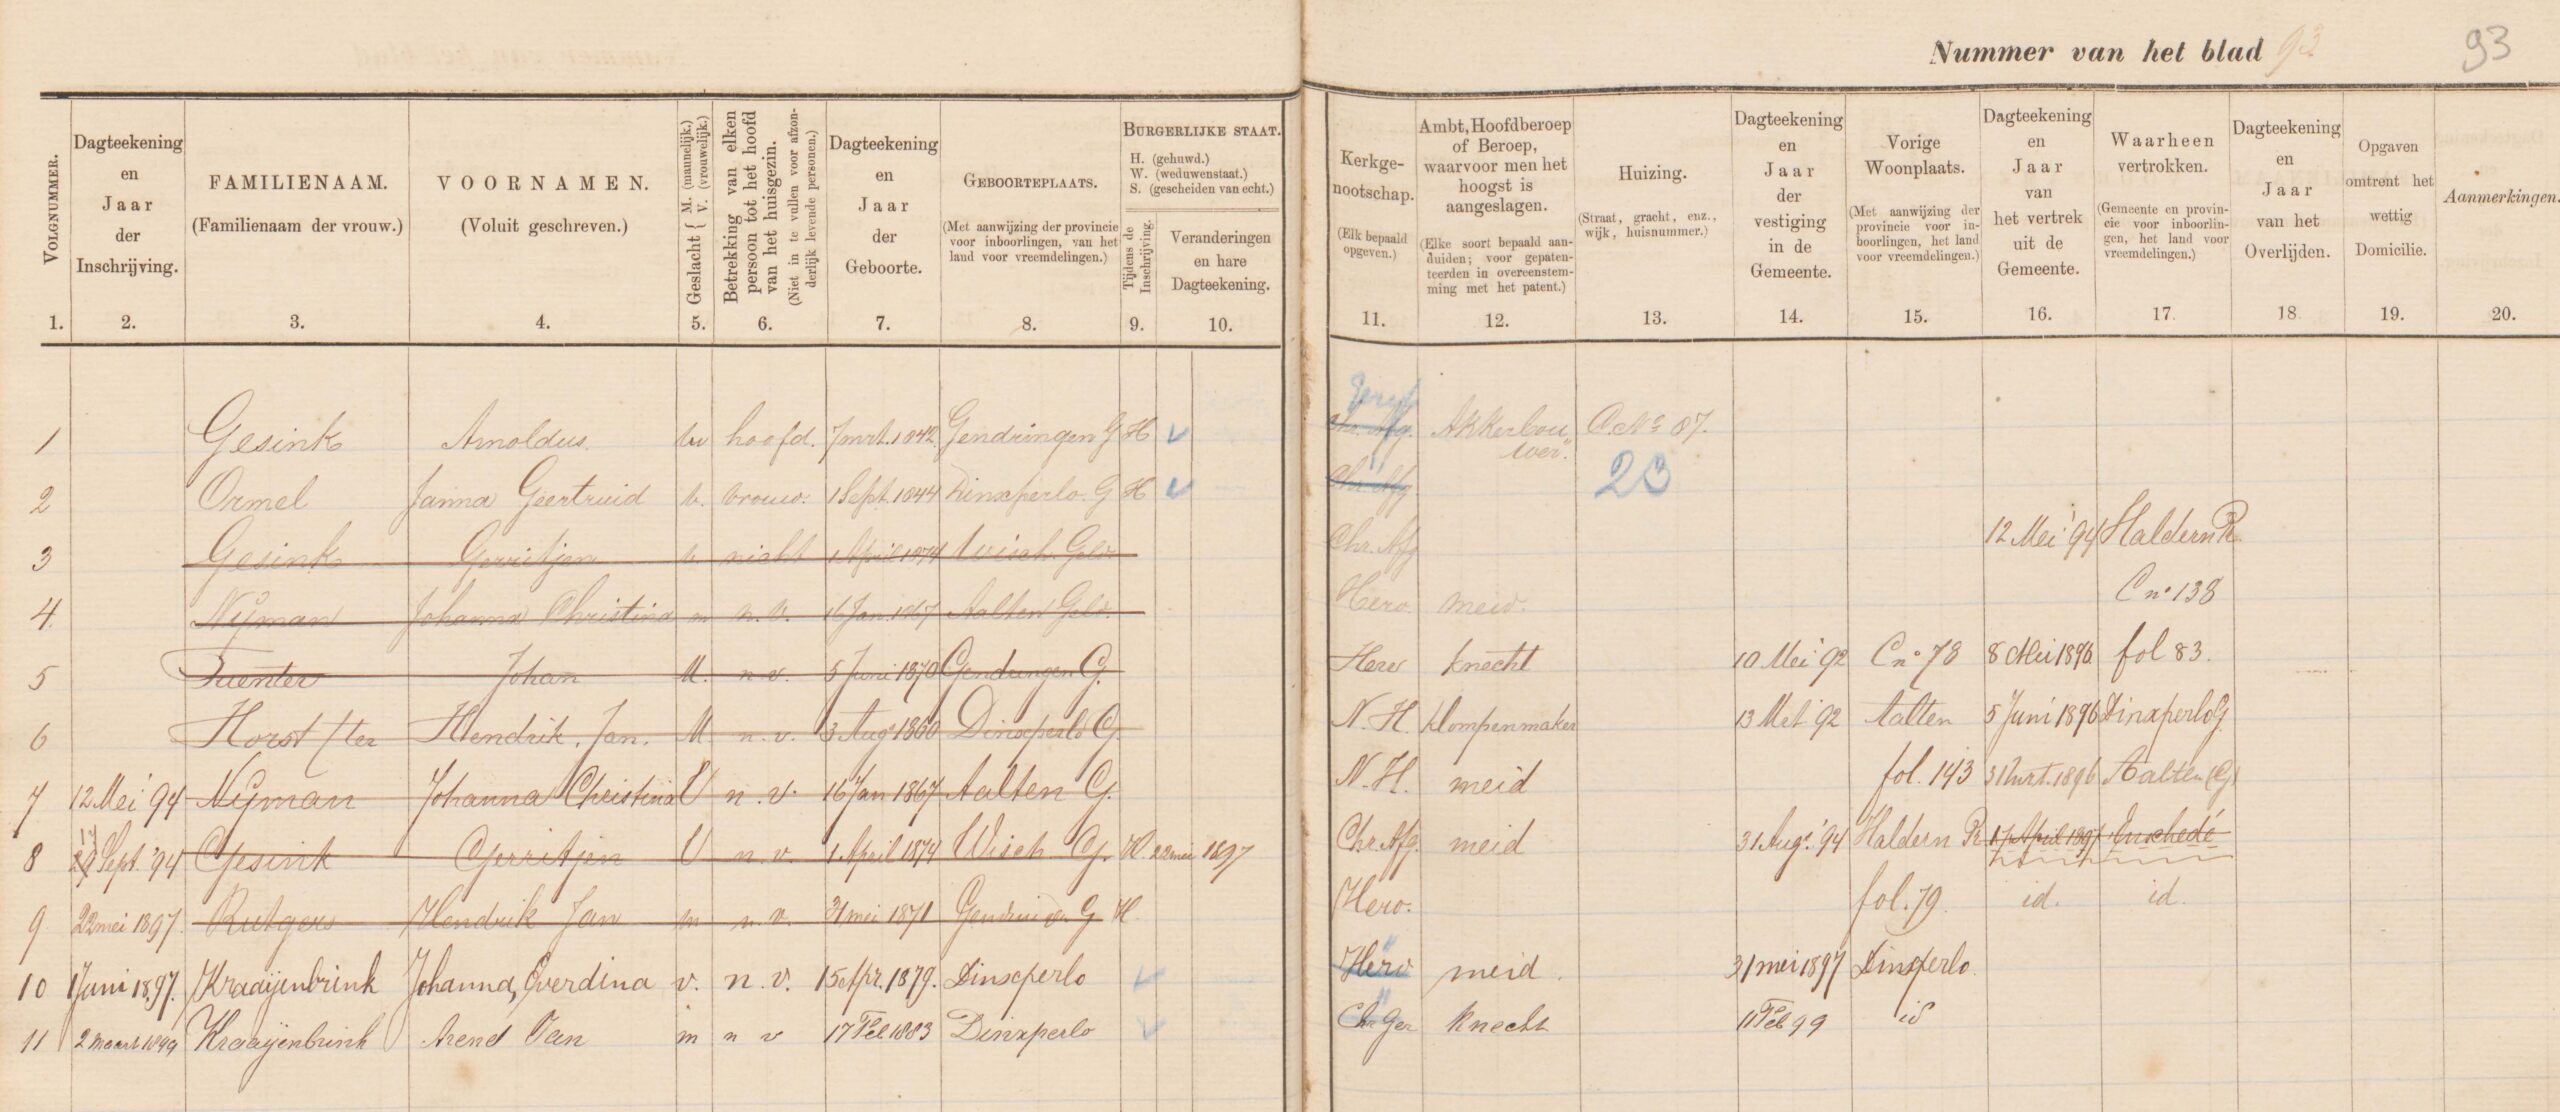 Nummer van het blad 93 93
VOLGNUMMER.
1.
Dagteekening
en
Jaar
der
Inschrijving.
2.
FAMILIENAAM.
(Familienaam der vrouw.)
3.
VOORNAMEN.
(Voluit geschreven.)
4.
Geslacht { M. (mannelijk.) V. (vrouwelijk.)
5.
Betrekking van elken
persoon tot het hoofd
van het huisgezin.
(Niet in te vullen voor afzon-
derlijk levende personen.)
6.
Dagteekening
en
Jaar
der
Geboorte.
7.
GEBOORTEPLAATS.
(Met aanwijzing der provincie
voor inboorlingen, van het
land voor vreemdelingen.)
8.
BURGERLIJKE STAAT.
H. (gehuwd.)
W. (weduwenstaat.)
S. (gescheiden van echt.)
Tijdens de
Inschrijving.
9.
Veranderingen
en hare
Dagteekening.
10.
Kerkge-
nootschap.
(Elk bepaald
opgeven.)
11.
Ambt, Hoofdberoep
of Beroep,
waarvoor men het
hoogst is
aangeslagen.
(Elke soort bepaald aan-
duiden; voor gepaten-
teerden in overeenstem-
ming met het patent.)
12.
Huizing.
(Straat, gracht, enz.,
wijk, huisnummer.)
13.
Dagteekening
en
Jaar
der
vestiging
in de
Gemeente.
14.
Vorige
Woonplaats.
(Met aanwijzing der
provincie voor in-
boorlingen, het land
voor vreemdelingen.)
15.
Dagteekening
en
Jaar
van
het vertrek
uit de
Gemeente.
16.
Waarheen
vertrokken.
(Gemeente en provin-
cie voor inboorlin-
gen, het land voor
vreemdelingen.)
17.
Dagteekening
en
Jaar
van het
Overlijden.
18
Opgaven
omtrent het
wettig
Domicilie.
19.
Aanmerkingen.
20.
1 Gesink Arnoldus. hoofd. 7 mrt. 1842. Gendringen G H Chr. Afg. Akkerbou C. No 87.
wer.
2 Ormel Janna Geertruid v. vrouw. 1 Sept. 1844 Dinxperlo. G H Chr. Afg 23
3 Gesink Gerritjen v nicht 1 April 1874 Wisch Geld Chr. Afg 12 Mei '94 Haldern Pr.
4. Nijman Johanna Christina m n.v. 16 Jan. 1867 Aalten Geld. Herv. meid. C no 138
5 Tuenter Johan M. n.v. 5 Juni 1870 Gendringen G. Herv knecht 10 Mei 92 C no 78 8 Mei 1896 fol 83.
6 Horst /ter Hendrik Jan. M n.v. 3 Aug. 1860 Dinxperlo G. N.H. klompenmaker 13 Mei '92 Aalten 5 Juni 1896 Dinxperlo G.
7 12 Mei '94 Nijman Johanna Christina V n.v. 16 Jan 1867 Aalten G. N.H. meid fol. 143 31 mrt. 1896 Aalten (G)
8 Sept. '94 Gesink Gerritjen V n.v. 1 April 1874 Wisch G. H. 22 mei 1897 Chr. Afg. meid 31 Aug. '94 Haldern Pr April 1897 Enschedé
9 22 mei 1897. Rutgers Hendrik Jan m n.v. 31 mei 1871 G H. Herv. fol. 79. id. id.
10 1 Juni 1897. Kraaijenbrink Johanna, Everdina v. n.v. 15 Apr. 1879. Dinxperlo Herv meid. 31 mei 1897 Dinxperlo.
11 2 maart 1899 Kraaijenbrink Arend Jan m n v 17 Feb 1883 Dinxperlo Chr Ger knecht 11 Feb 99 id